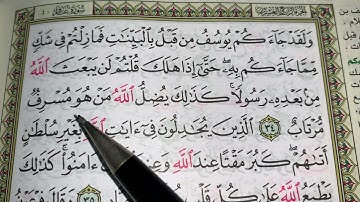 وَلَقَدْ جَآءَكُمْ يُوسُفُ مِن قَبْلُ بِٱلْبَيِّنَٰتِ فَمَا زِلْتُمْ فِى شَكٍّ
مِّمَّا جَآءَكُم بِهِۦ ۖ حَتَّىٰٓ إِذَا هَلَكَ قُلْتُمْ لَن يَبْعَثَ ٱللَّهُ
مِنۢ بَعْدِهِۦ رَسُولًا ۚ كَذَٰلِكَ يُضِلُّ ٱللَّهُ مَنْ هُوَ مُسْرِفٌ
مُّرْتَابٌ ٣٤ ٱلَّذِينَ يُجَٰدِلُونَ فِىٓ ءَايَٰتِ بِغَيْرِ سُلْطَٰنٍ
أَتَىٰهُمْ ۖ كَبُرَ مَقْتًا عِندَ ٱللَّهِ وَعِندَ ءَامَنُوا۟ ۚ كَذَٰلِكَ
يَطْبَعُ ٱللَّهُ عَلَىٰ كُلِّ ٣٥ وَقَالَ فِرْعَوْنُ